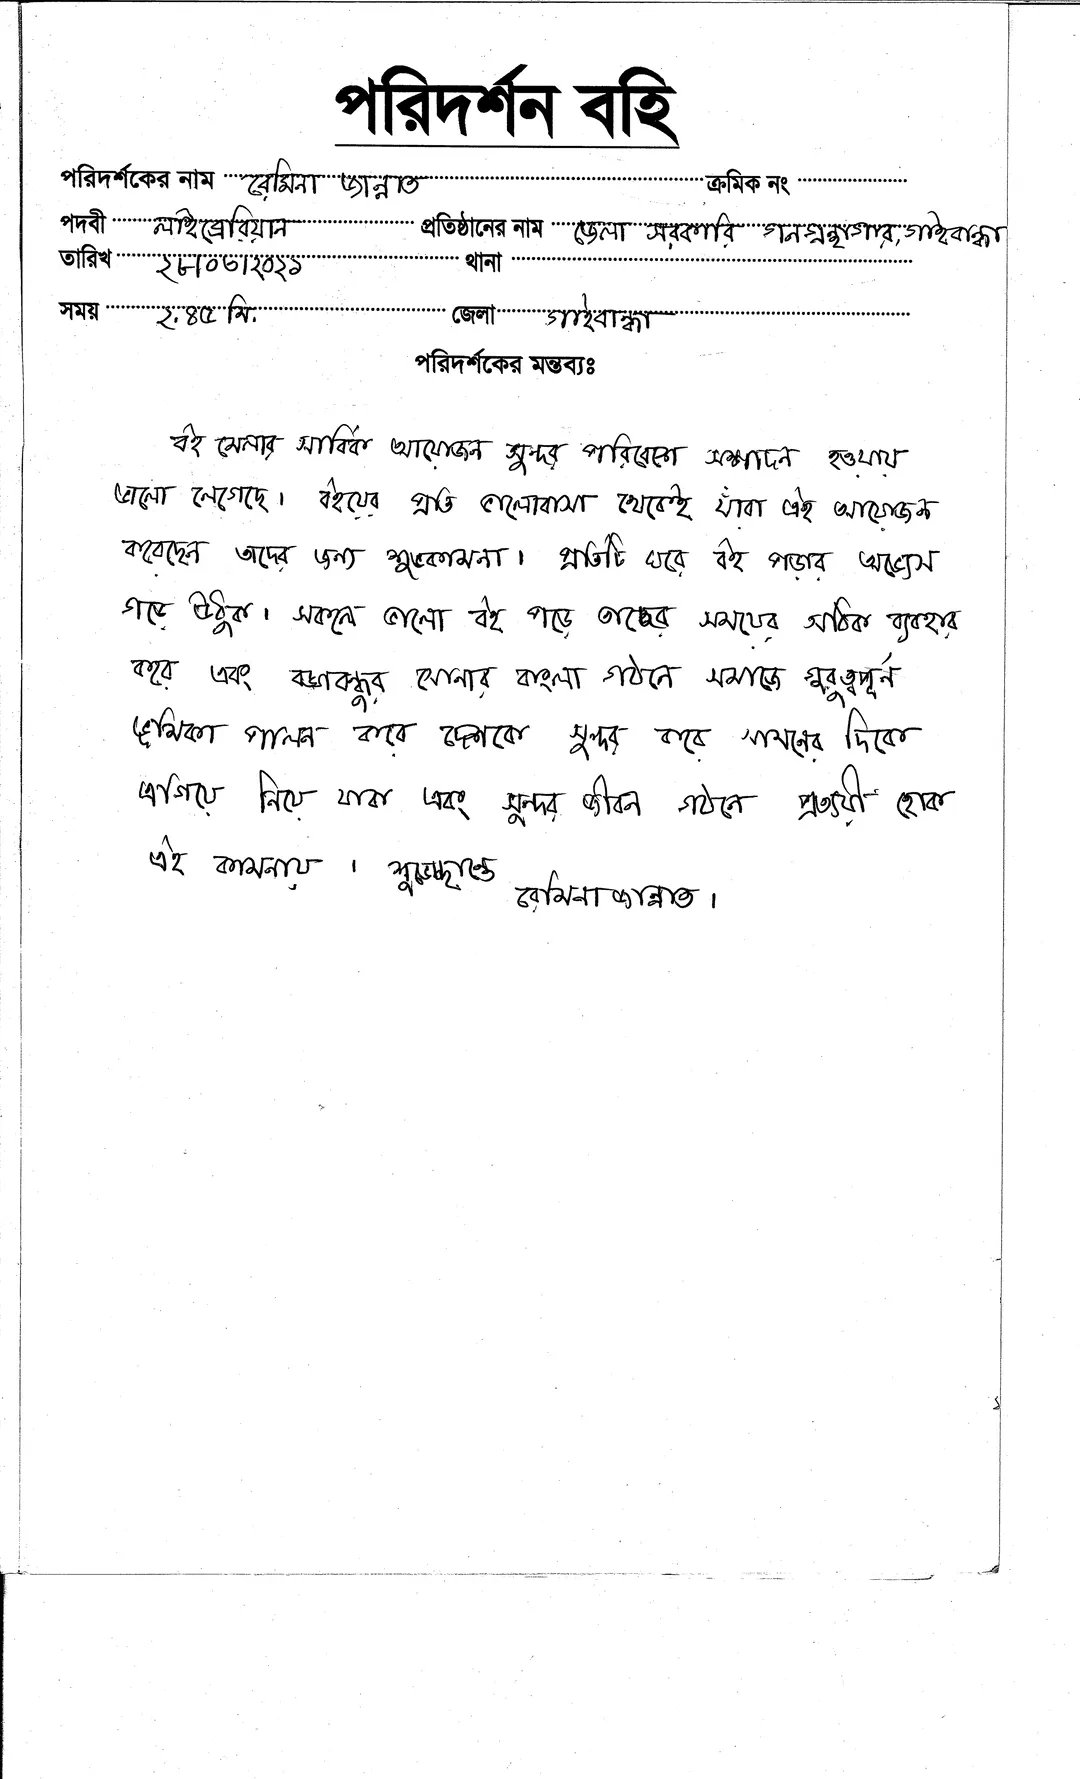 পরিদর্শন বহি
পরিদর্শকের নাম রেমিনা জান্নাত ক্রমিক নং
পদবী লাইব্রেরিয়ান প্রতিষ্ঠানের নাম জেলা সরকারি গনগ্রন্থাগার, গাইবান্ধা
তারিখ ২৮/০৩/২০২১ থানা
সময় ২.৪৫ মি. জেলা গাইবান্ধা
পরিদর্শকের মন্তব্যঃ
বই মেলার সার্বিক আয়োজন সুন্দর পরিবেশে সম্পাদন হওয়ায়
ভালো লেগেছে। বইয়ের প্রতি ভালোবাসা থেকেই যাঁরা এই আয়োজন
করেছেন তাদের জন্য শুভকামনা। প্রতিটি ঘরে বই পড়ার অভ্যেস
গড়ে উঠুক। সকলে ভালো বই পড়ে তাদের সময়ের সঠিক ব্যবহার
করে এবং বঙ্গবন্ধুর সোনার বাংলা গঠনে সমাজে গুরুত্বপূর্ন
ভূমিকা পালন করে দেশকে সুন্দর করে সামনের দিকে
এগিয়ে নিয়ে যাক এবং সুন্দর জীবন গঠনে প্রত্যয়ী হোক
এই কামনায়। শুভেচ্ছান্তে
রেমিনা জান্নাত।